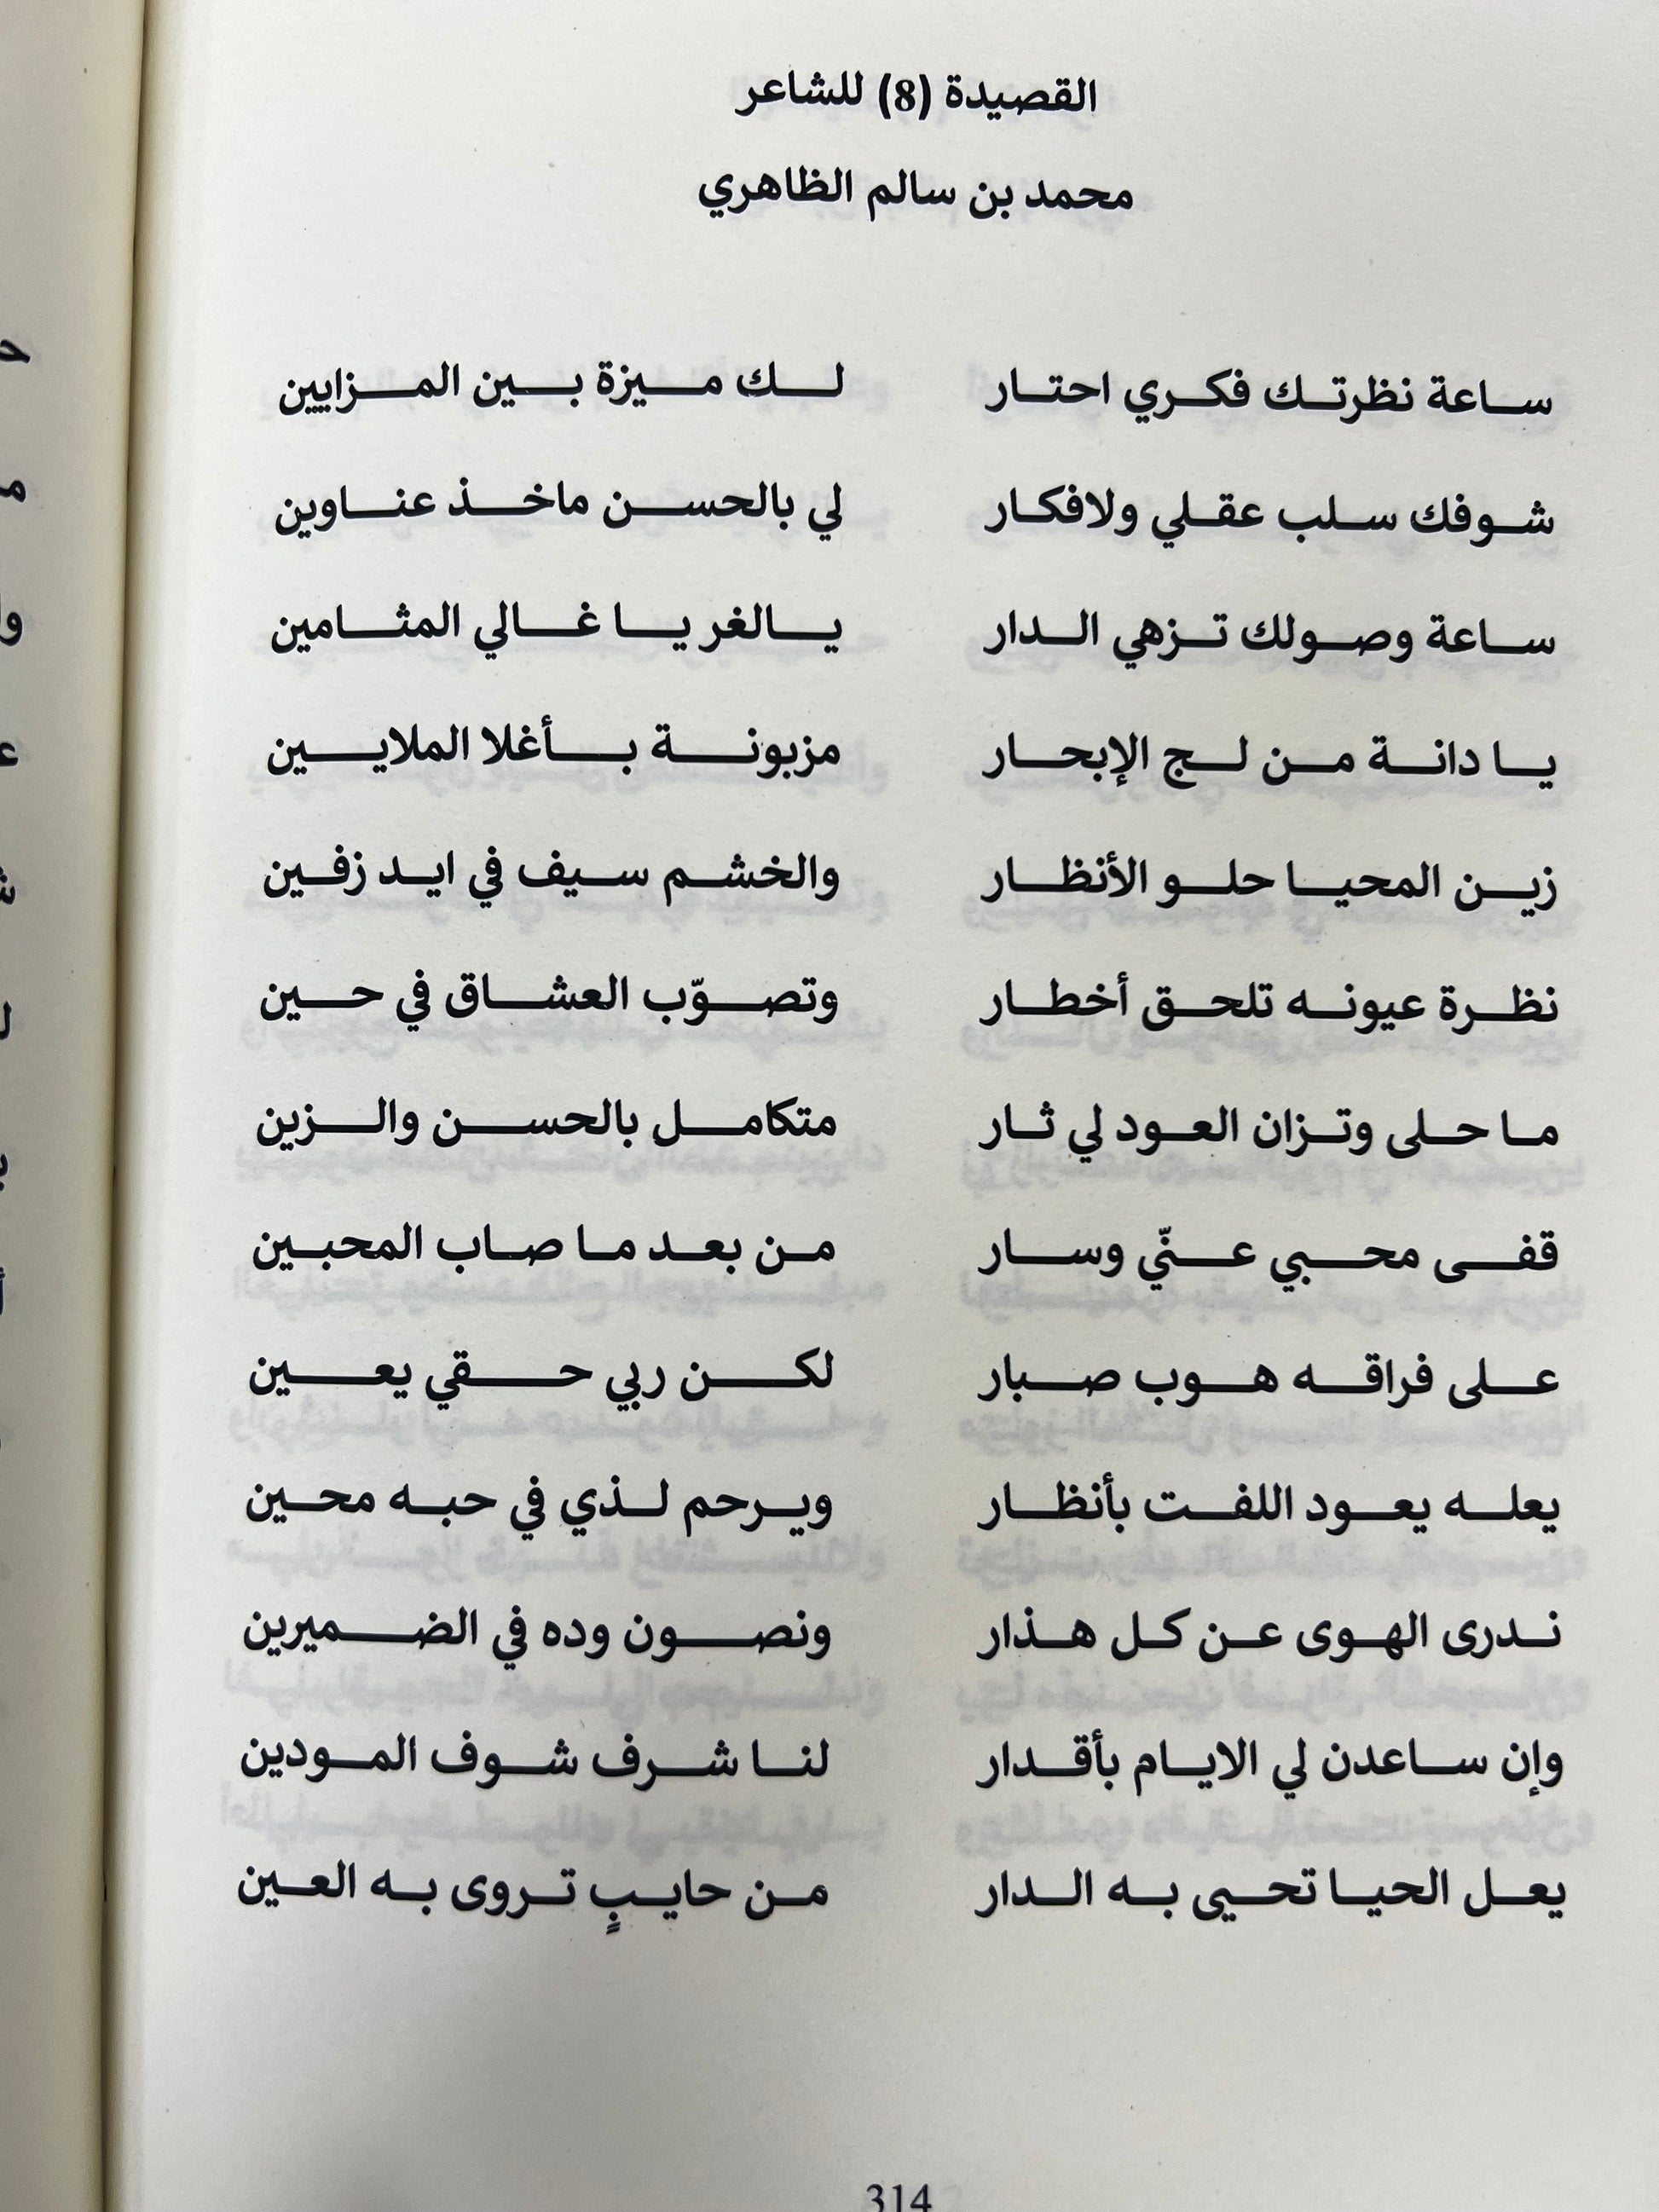 القصيدة (8) للشاعر
محمد بن سالم الظاهري
ساعة نظرتك فكري احتار لك ميزة بين المزايين
شوفك سلب عقلي ولافكار لي بالحسن ماخذ عناوين
ساعة وصولك تزهي الدار يالغر يا غالي المثامين
يا دانة من لج الإبحار مزبونة بأغلا الملايين
زين المحيا حلو الأنظار والخشم سيف في ايد زفين
نظرة عيونه تلحق أخطار وتصوّب العشاق في حين
ما حلى وتزان العود لي ثار متكامل بالحسن والزين
قفى محبي عنّي وسار من بعد ما صاب المحبين
على فراقه هوب صبار لكن ربي حقي يعين
يعله يعود اللفت بأنظار ويرحم لذي في حبه محين
ندرى الهوى عن كل هذار ونصون وده في الضميرين
وإن ساعدن لي الايام بأقدار لنا شرف شوف المودين
يعل الحيا تحيى به الدار من حايبٍ تروى به العين
314